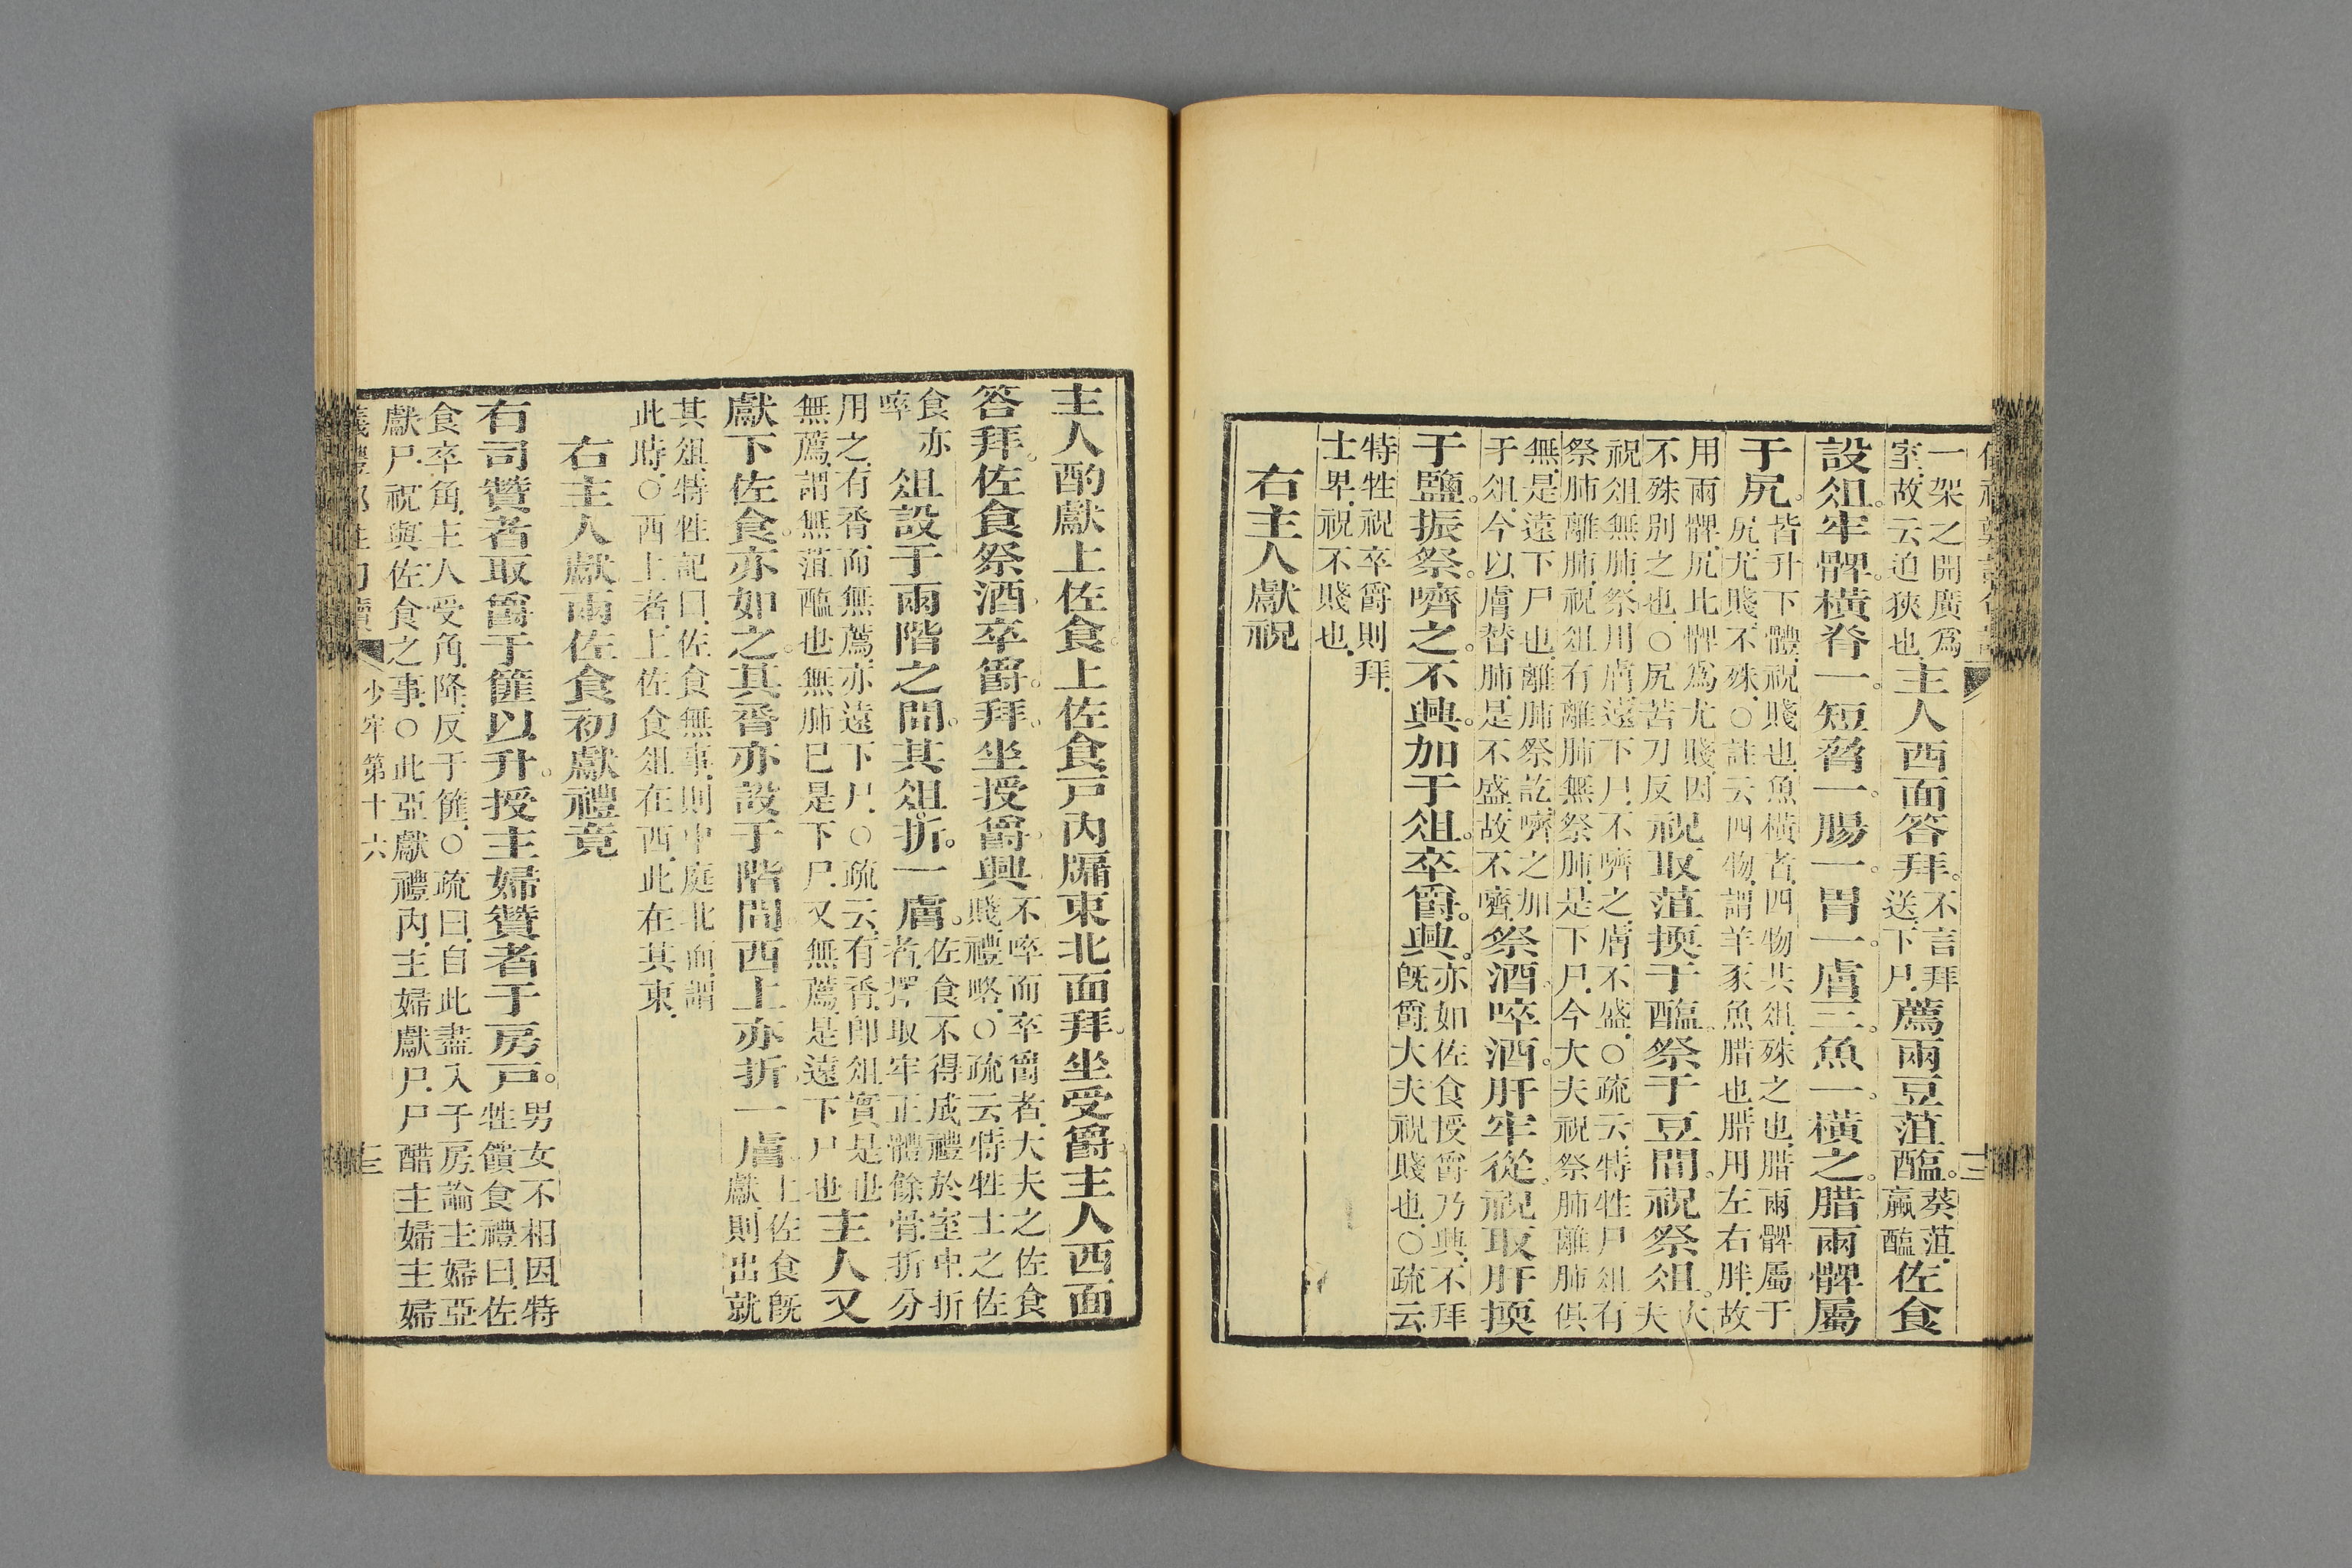 一架之開廣爲
室故云迫狹也主人西面答拜不言拜送下尸薦兩豆菹醢葵菹蠃醢佐食
設俎牢髀橫脊一短脅一腸一胃一膚三魚一橫之腊兩髀屬
于尻皆升下體祝賤也魚橫者四物共俎殊之也腊兩髀屬于
尻尤賤不殊○註云四物謂羊豕魚腊也腊用左右胖故
用兩髀尻比髀爲尤賤因
不殊別之也○尻苦刀反祝取菹擩于醢祭于豆間祝祭俎大夫
祝俎無肺祭用膚遠下尸不嚌之膚不盛○疏云特牲尸俎有
祭肺離肺祝俎有離肺無祭肺是下尸今大夫祝祭肺離肺俱
無是遠下尸也離肺祭訖嚌之加
于俎今以膚替肺是不盛故不嚌祭酒啐酒肝牢從祝取肝擩
于鹽振祭嚌之不興加于俎卒爵興亦如佐食授爵乃興不拜旣爵大夫祝賤也○疏云
特牲祝卒爵則拜
士卑祝不賤也
右主人獻祝
主人酌獻上佐食上佐食戸內牖東北面拜坐受爵主人西面
答拜佐食祭酒卒爵拜坐授爵興不啐而卒爵者大夫之佐食
賤禮略○疏云特牲士之佐
食亦
啐俎設于兩階之間其俎折一膚佐食不得成禮於室中折
者擇取牢正體餘骨折分
用之有脀而無薦亦遠下尸○疏云有脀卽俎實是也
無薦謂無菹醢也無肺已是下尸又無薦是遠下尸也主人又
獻下佐食亦如之其脀亦設于階間西上亦折一膚上佐食旣
獻則出就
其俎特牲記曰佐食無事則中庭北面謂
此時○西上者上佐食俎在西此在其東
右主人獻兩佐食初獻禮竟
有司贊者取爵于篚以升授主婦贊者于房戸男女不相因特
牲饋食禮曰佐
食卒角主人受角降反于篚○疏曰自此盡入于房論主婦亞
獻尸祝與佐食之事○此亞獻禮內主婦獻尸尸醋主婦主婦
少牢第十六